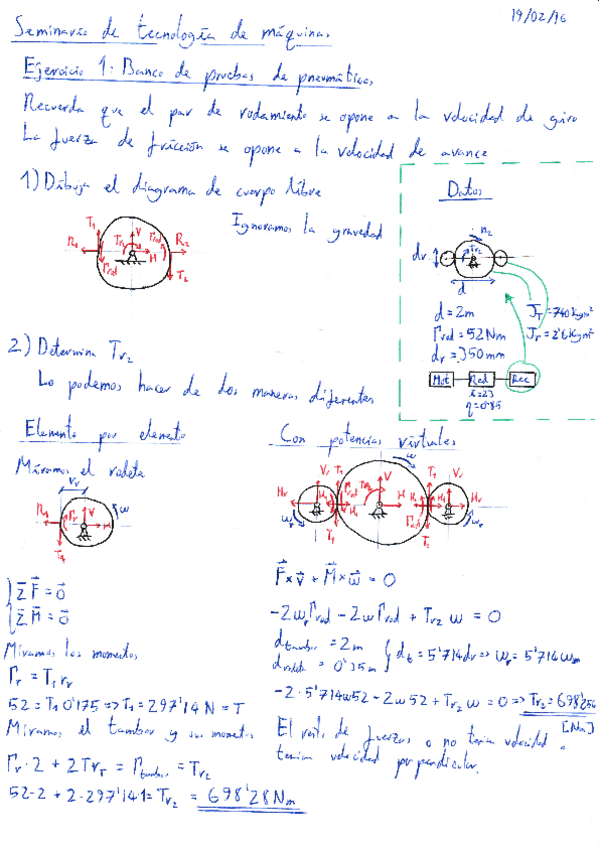 19/02/16
Seminario de tecnología de máquinas
Ejercicio 1: Banco de pruebas de pneumáticos
Recuerda que el par de rodamiento se opone a la velocidad de giro
La fuerza de fricción se opone a la velocidad de avance
1) Dibuja el diagrama de cuerpo libre
Ignoramos la gravedad
Datos
d = 2m
Γrod = 52Nm
dr = 350mm
JT = 740 Kgm²
Jr = 2'6 Kgm²
Mot Red Rec
i=23
η=0'85
2) Determina Tr2
Lo podemos hacer de dos maneras diferentes
Elemento por elemento
Miramos el rodete
ΣF⃗ = 0⃗
ΣM⃗ = 0⃗
Miramos los momentos
Γr = T1 rr
52 = T1 0'175 => T1 = 297'14 N = T
Miramos el tambor y sus momentos
Γr · 2 + 2Trr = Γtambor = Tr2
52·2 + 2·297'14·1 = Tr2 = 698'28Nm
Con potencias virtuales
F⃗×v⃗ + M⃗×ω⃗ = 0
-2ωrΓrod - 2ωΓrod + Tr2 ω = 0
dtambor = 2m
drodete = 0'35m
dt = 5'714dr => ωr = 5'714ωm
-2·5'714ω52 - 2ω52 + Tr2 ω = 0 => Tr2 = 698'256
[Nm]
El resto de fuerzas o no tenían velocidad o
tenían velocidad perpendicular.